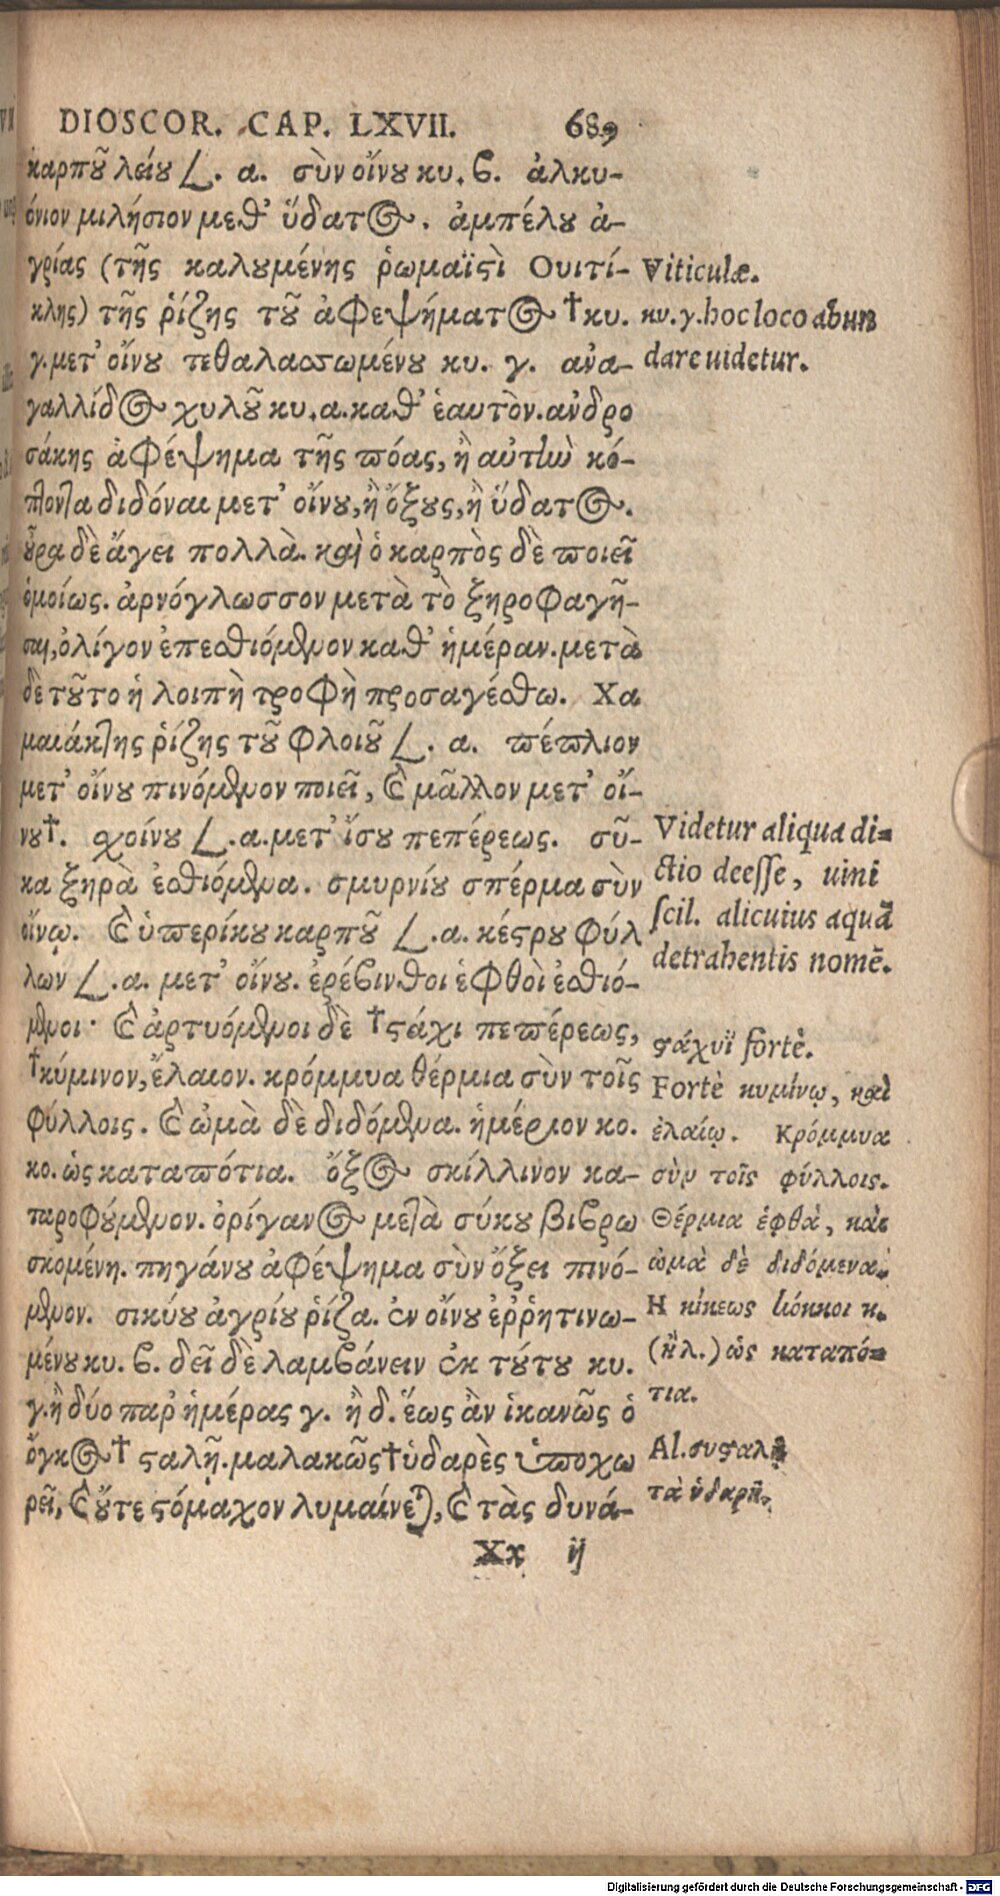 DIOSCOR. CAP. LXVII. 689
καρποῦ λείου 𐅻. α. σὺν οἴνου κυ. β. ἀλκυ-
όνιον μιλήσιον μεθ’ ὕδατος. ἀμπέλου ἀ-
γρίας (τῆς καλουμένης ῥωμαϊστὶ Ουιτί-
κλης) τῆς ῥίζης τοῦ ἀφεψήματος †κυ.
γ. μετ’ οἴνου τεθαλασσωμένου κυ. γ. ἀνα-
γαλλίδος χυλοῦ κυ. α. καθ’ ἑαυτὸν. ἀνδρο
σάκης ἀφέψημα τῆς πόας, ἢ αὐτὴν κό-
πτοντα διδόναι μετ’ οἴνου, ἢ ὄξους, ἢ ὕδατος.
οὖρα δὲ ἄγει πολλὰ. καὶ ὁ καρπὸς δὲ ποιεῖ
ὁμοίως. ἀρνόγλωσσον μετὰ τὸ ξηροφαγῆ-
σαι, ὀλίγον ἐπεσθιόμενον καθ’ ἡμέραν. μετὰ
δὲ τοῦτο ἡ λοιπὴ τροφὴ προσαγέσθω. Χα
μαιάκτης ῥίζης τοῦ φλοιοῦ 𐅻. α. πέπλιον
μετ’ οἴνου πινόμενον ποιεῖ, καὶ μᾶλλον μετ’ οἴ-
νου†. σχοίνου 𐅻. α. μετ’ ἴσου πεπέρεως. σῦ-
κα ξηρὰ ἐσθιόμενα. σμυρνίου σπέρμα σὺν
οἴνῳ. καὶ ὑπερίκου καρποῦ 𐅻. α. κέστρου φύλ
λων 𐅻. α. μετ’ οἴνου. ἐρέβινθοι ἑφθοὶ ἐσθιό-
μενοι· καὶ ἀρτυόμενοι δὲ †στάχι πεπέρεως,
†κύμινον, ἔλαιον. κρόμμυα θέρμια σὺν τοῖς
φύλλοις. καὶ ὠμὰ δὲ διδόμενα. ἡμέριον κο.
κο. ὡς καταπότια. ὄξος σκίλλινον κα-
ταροφούμενον. ὀρίγανος μετὰ σύκου βιβρω
σκομένη. πηγάνου ἀφέψημα σὺν ὄξει πινό-
μενον. σικύου ἀγρίου ῥίζα. ἐν οἴνου ἐῤῥητινω-
μένου κυ. β. δεῖ δὲ λαμβάνειν ἐκ τούτου κυ.
γ. ἢ δύο παρ’ ἡμέρας γ. ἢ δ. ἕως ἂν ἱκανῶς ὁ
ὄγκος † σταλῇ. μαλακῶς †ὑδαρὲς ὑποχω
ρεῖ, καὶ οὔτε στόμαχον λυμαίνεται, καὶ τὰς δυνά-
Xx ij
Viticulæ.
κυ. γ. hoc loco abun
dare uidetur.
Videtur aliqua di-
ctio deesse, uini
scil. alicuius aquā
detrahentis nomē.
στάχυϊ fortè.
Fortè κυμίνῳ, καὶ
ἐλαίῳ. Κρόμμυα
σὺν τοῖς φύλλοις.
Θέρμια ἑφθὰ, καὶ
ὠμὰ δὲ διδόμενα.
Η κίκεως κόκκοι κ.
(ἢ λ.) ὡς καταπό-
τια.
Al. συσταλῇ
τὰ ὑδαρῆ.
Digitalisierung gefördert durch die Deutsche Forschungsgemeinschaft - DFG